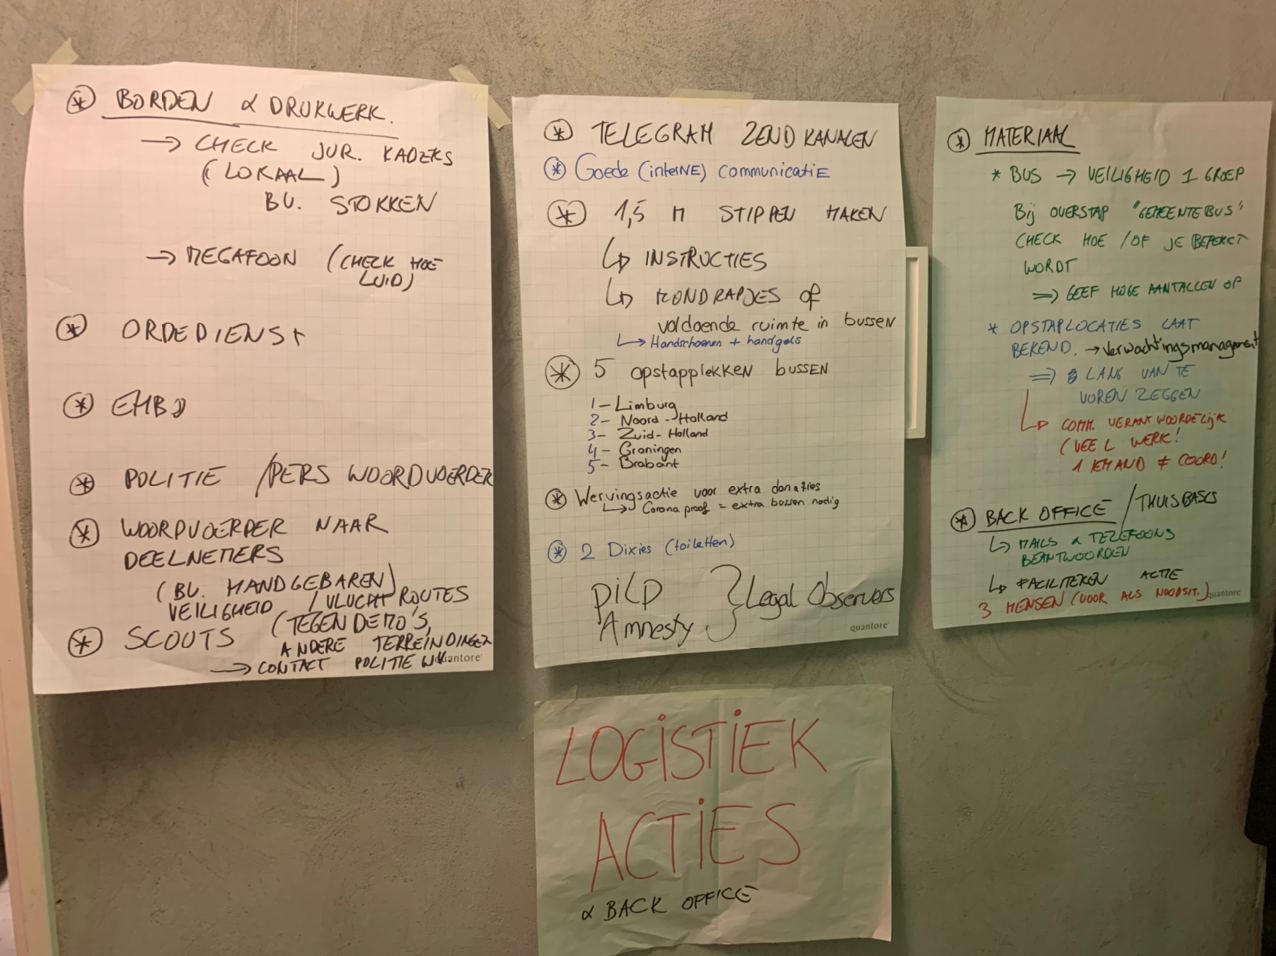 * BORDEN & DRUKWERK.
→ CHECK JUR. KADERS
(LOKAAL)
BV. STOKKEN
→ MEGAFOON (CHECK HOE
LUID)
* ORDEDIENST
* EHBO
* POLITIE / PERS WOORDVOERDER
* WOORDVOERDER NAAR
DEELNEMERS
(BV. HANDGEBAREN)
VEILIGHEID / VLUCHTROUTES
* SCOUTS (TEGENDEMO'S,
ANDERE TERREINDINGEN
→ CONTACT POLITIE
quantore
* TELEGRAM ZENDKANALEN
* Goede (interne) communicatie
* 1,5 M STIPPEN MAKEN
↳ INSTRUCTIES
↳ MONDKAPJES of
voldoende ruimte in bussen
↳ Handschoenen + handgels
* 5 opstapplekken bussen
1 - Limburg
2 - Noord-Holland
3 - Zuid-Holland
4 - Groningen
5 - Brabant
* Wervingsactie voor extra donaties
↳ Corona proof = extra bussen nodig
* 2 Dixies (toiletten)
PILP
Amnesty } Legal Observers
quantore
* MATERIAAL
* BUS → VEILIGHEID 1 GROEP
Bij OVERSTAP "GEMEENTEBUS"
CHECK HOE / OF JE BEPERKT
WORDT
⇒ GEEF HOGE AANTALLEN OP
* OPSTAPLOCATIES LAAT
BEKEND. → verwachtingsmanagement
⇒ LANG VAN TE
VOREN ZEGGEN
↳ COMM. VERANTWOORDELIJK
(VEEL WERK!
1 IEMAND ≠ COORD!
* BACK OFFICE / THUISBASIS
↳ MAILS & TELEFOONS
BEANTWOORDEN
↳ FACILITEREN ACTIE
3 MENSEN (VOOR ALS NOODSIT.)
quantore
LOGISTIEK
ACTIES
& BACK OFFICE